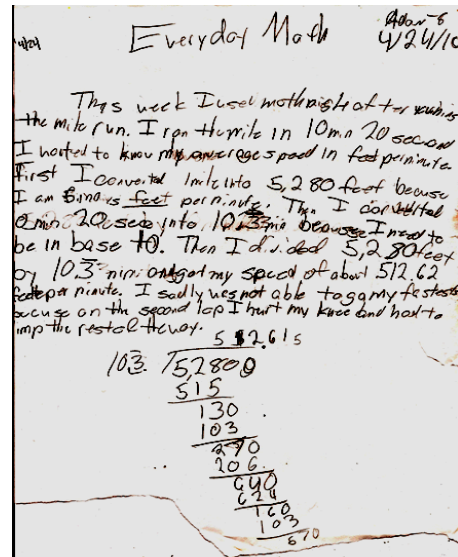 4/24
Everyday Math
Adam S
4/24/10
This week I used math right after running
the mile run. I ran the mile in 10 min 20 second
I wanted to know my average speed in feet per minute
first I converted 1 mile into 5,280 feet because
I am feet per minute. Then I converted
0 min 20 secs into 10.3 min because I need to
be in base 10. Then I divided 5,280 feet
by 10.3 min and got my speed of about 512.62
feet per minute. I sadly was not able to my fastest
ecause on the second lap I hurt my knee and had to
imp the rest of the way.
512.615
10.3 5,280
515
130
103
270
206
640
624
160
103
570